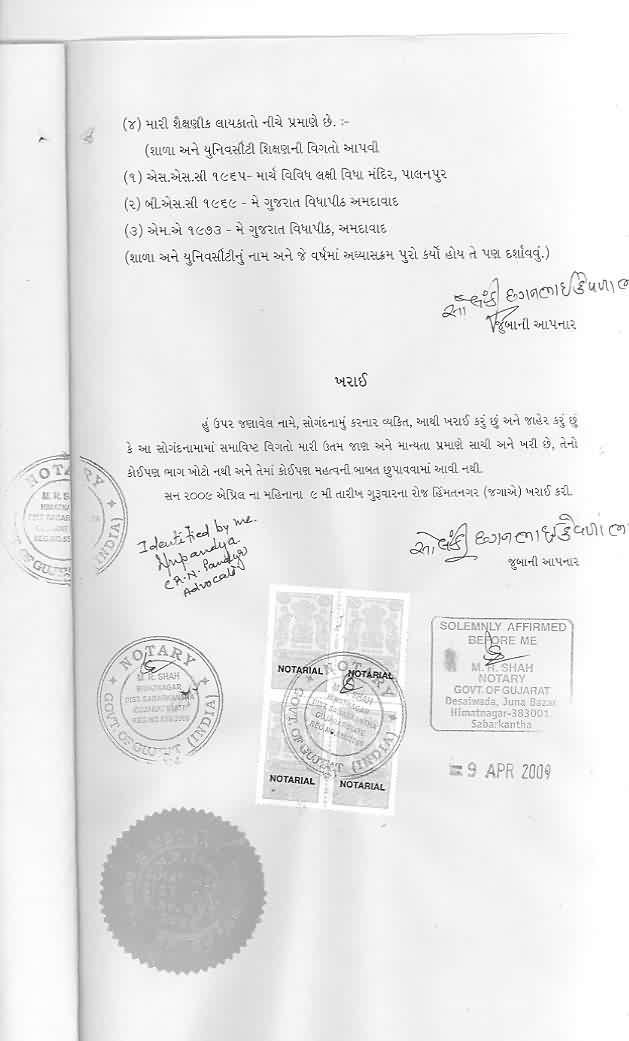 (૪) મારી શૈક્ષણીક લાયકાતો નીચે પ્રમાણે છે. :-
(શાળા અને યુનિવર્સીટી શિક્ષણની વિગતો આપવી
(૧) એસ.એસ.સી ૧૯૬૫- માર્ચ વિવિધ લક્ષી વિધા મંદિર, પાલનપુર
(૨) બી.એસ.સી ૧૯૬૯ - મે ગુજરાત વિધાપીક અમદાવાદ
(૩) એમ.એ ૧૯૭૩ - મે ગુજરાત વિધાપીક, અમદાવાદ
(શાળા અને યુનિવર્સીટીનું નામ અને જે વર્ષમાં અભ્યાસક્રમ પુરો કર્યો હોય તે પણ દર્શાવવું.)
સોલંકી છગનભાઈ કેવળાભ
જુબાની આપનાર
ખરાઈ
હું ઉપર જણાવેલ નામે, સોગંદનામું કરનાર વ્યકિત, આથી ખરાઈ કરું છું અને જાહેર કરું છું
કે આ સોગંદનામામાં સમાવિષ્ટ વિગતો મારી ઉતમ જાણ અને માન્યતા પ્રમાણે સાચી અને ખરી છે, તેનો
કોઈપણ ભાગ ખોટો નથી અને તેમાં કોઈપણ મહત્વની બાબત છુપાવવામાં આવી નથી.
સન ૨૦૦૯ એપ્રિલ ના મહિનાના ૯ મી તારીખ ગુરૂવારના રોજ હિંમતનગર (જગાએ) ખરાઈ કરી.
સોલંકી છગનભાઈ કેવળાભ
જુબાની આપનાર
Identified by me.
(R.N. Pandya)
Advocate
NOTARY
M. R. SHAH
GOVT. OF GUJRAT (INDIA)
SOLEMNLY AFFIRMED
BEFORE ME
M. R. SHAH
NOTARY
GOVT. OF GUJARAT
Desaiwada, Juna Bazar
Himatnagar-383001.
Sabarkantha
9 APR 2009
NOTARY
M. R. SHAH
HIMATNAGAR
DIST. SABARKANTHA
GUJARAT STATE
GOVT. OF GUJRAT (INDIA)
NOTARIAL
NOTARIAL
NOTARIAL
NOTARIAL
NOTARY
M. R. SHAH
HIMATNAGAR
DIST. SABARKANTHA
GUJARAT STATE
GOVT. OF GUJRAT (INDIA)